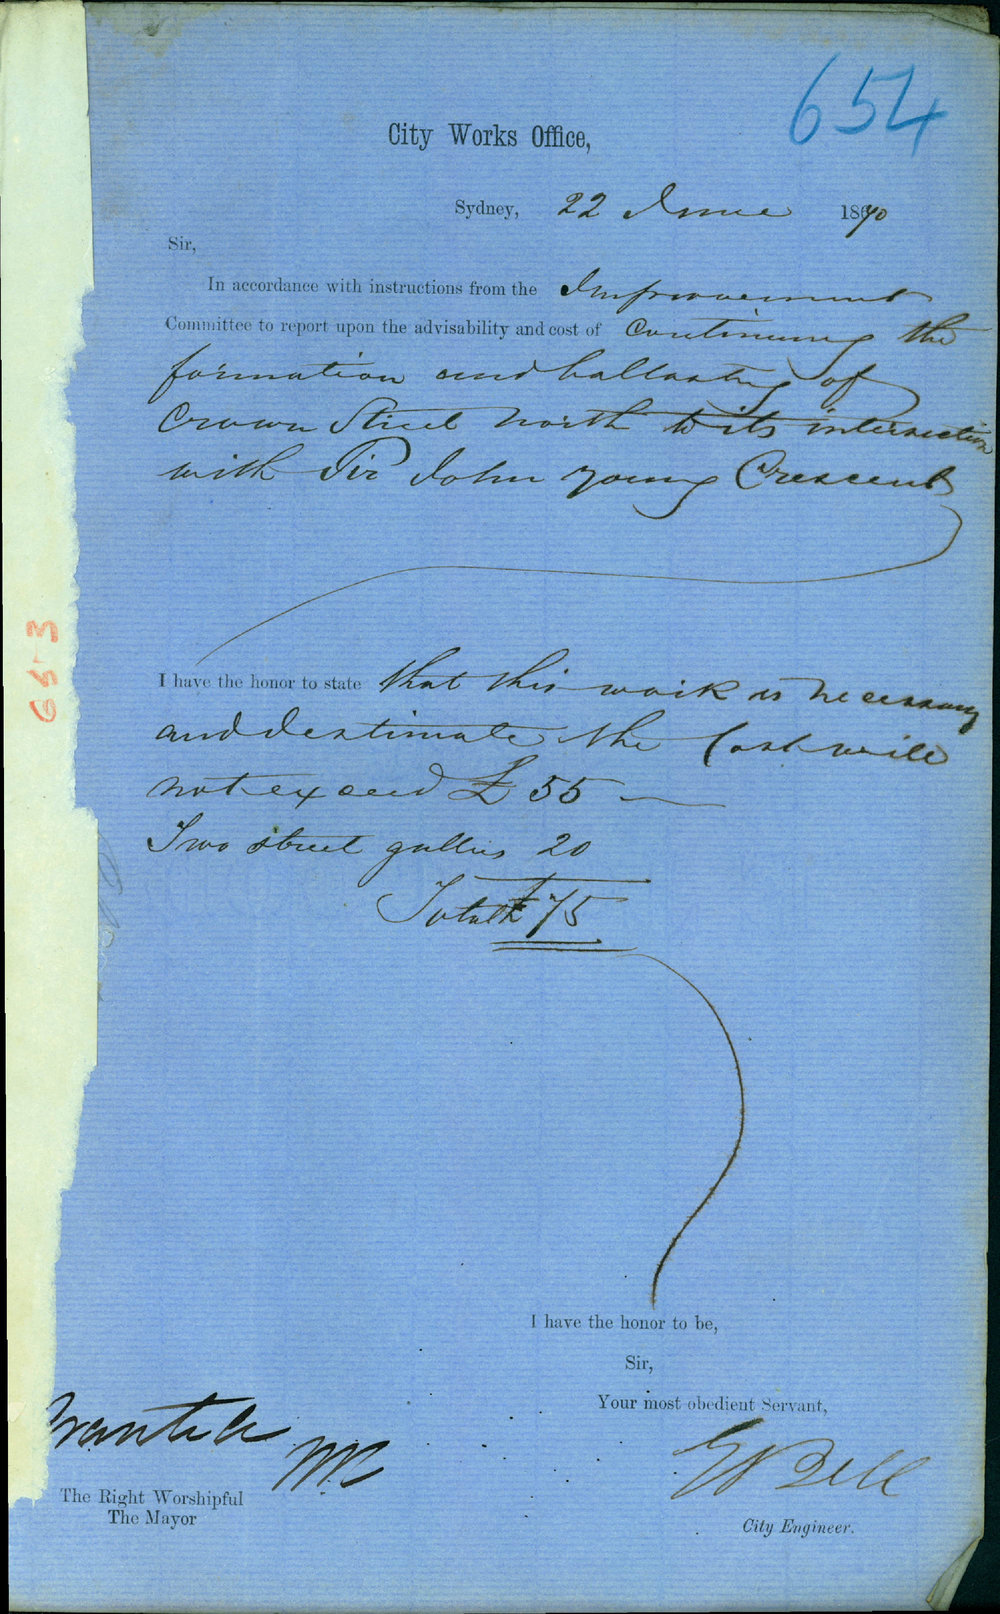 654
City Works Office,
Sydney, 22 June 1870
Sir,
In accordance with instructions from the Improvement
Committee to report upon the advisability and cost of continuing the
formation and ballasting of
Crown Street north to its intersection
with Sir John Young Crescent
653
I have the honor to state that this work is necessary
and I estimate the cost will
not exceed £55
Two street gullies 20
Total £75
I have the honor to be,
Sir,
Your most obedient Servant,
Granted
E Bell
The Right Worshipful
The Mayor
City Engineer.